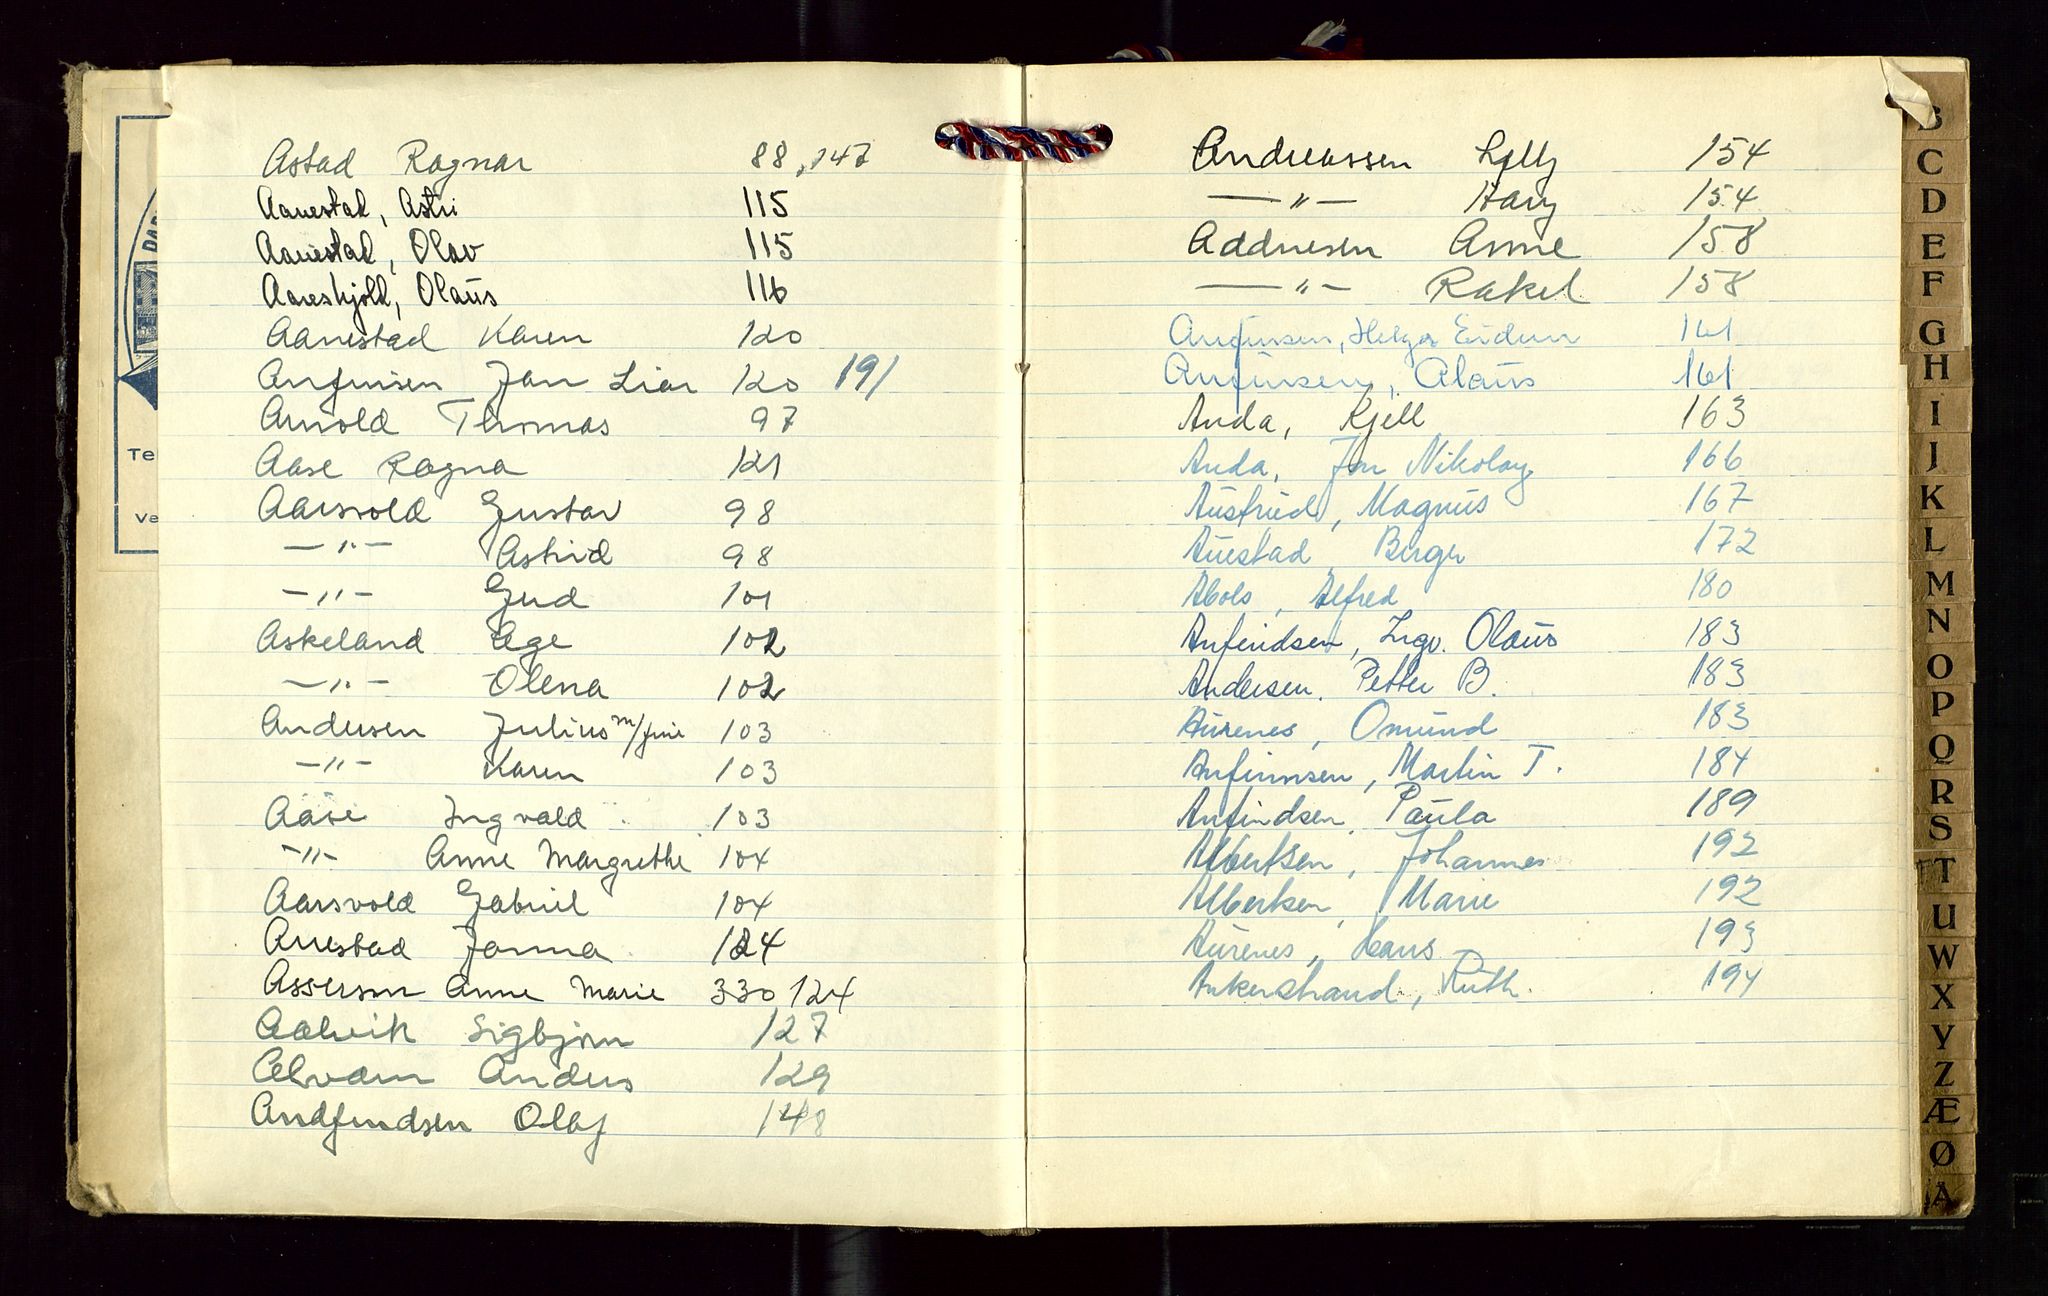 Astad Ragnar 88, 147
Aanestad, Astri 115
Aanestad, Olav 115
Aareskjold, Olaus 116
Aanestad Karen 120
Anfinsen Jan Liar 120 191
Arnold Thomas 97
Aase Ragna 121
Aarsvold Gustav 98
—"— Astrid 98
—"— Gud 101
Askeland Åge 102
—"— Olena 102
Andersen Julius 103
—"— Karen 103
Aase Ingvald 103
—"— Anne Margrethe 104
Aarsvold Gabriel 104
Auestad Janna 124
Asserson Anne Marie 330 124
Aalvik Sigbjørn 127
Alværn Anders 129
Andfindsen Olaf 148
Te
Ve
Andreassen Lilly 154
—"— Harry 154
Addnesen Anne 158
—"— Rakel 158
Anfinsen, Helga 161
Anfinsen, Olaus 161
Anda, Kjell 163
Anda, Jon Nikolay 166
Ausfried, Magnus 167
Auestad Berger 172
Abols, Alfred 180
Anfindsen, Ingv. Olaus 183
Andersen, Petter B. 183
Aurenes, Omund 183
Anfinnsen, Martin T. 184
Anfindsen, Paula 189
Albertsen, Johannes 192
Albertsen, Marie 192
Aurenes, Hans 193
Ankerstrand, Ruth. 194
B
C
D
E
F
G
H
I
J
K
L
M
N
O
P
Q
R
S
T
U
W
X
Y
Z
Æ
Ø
Å